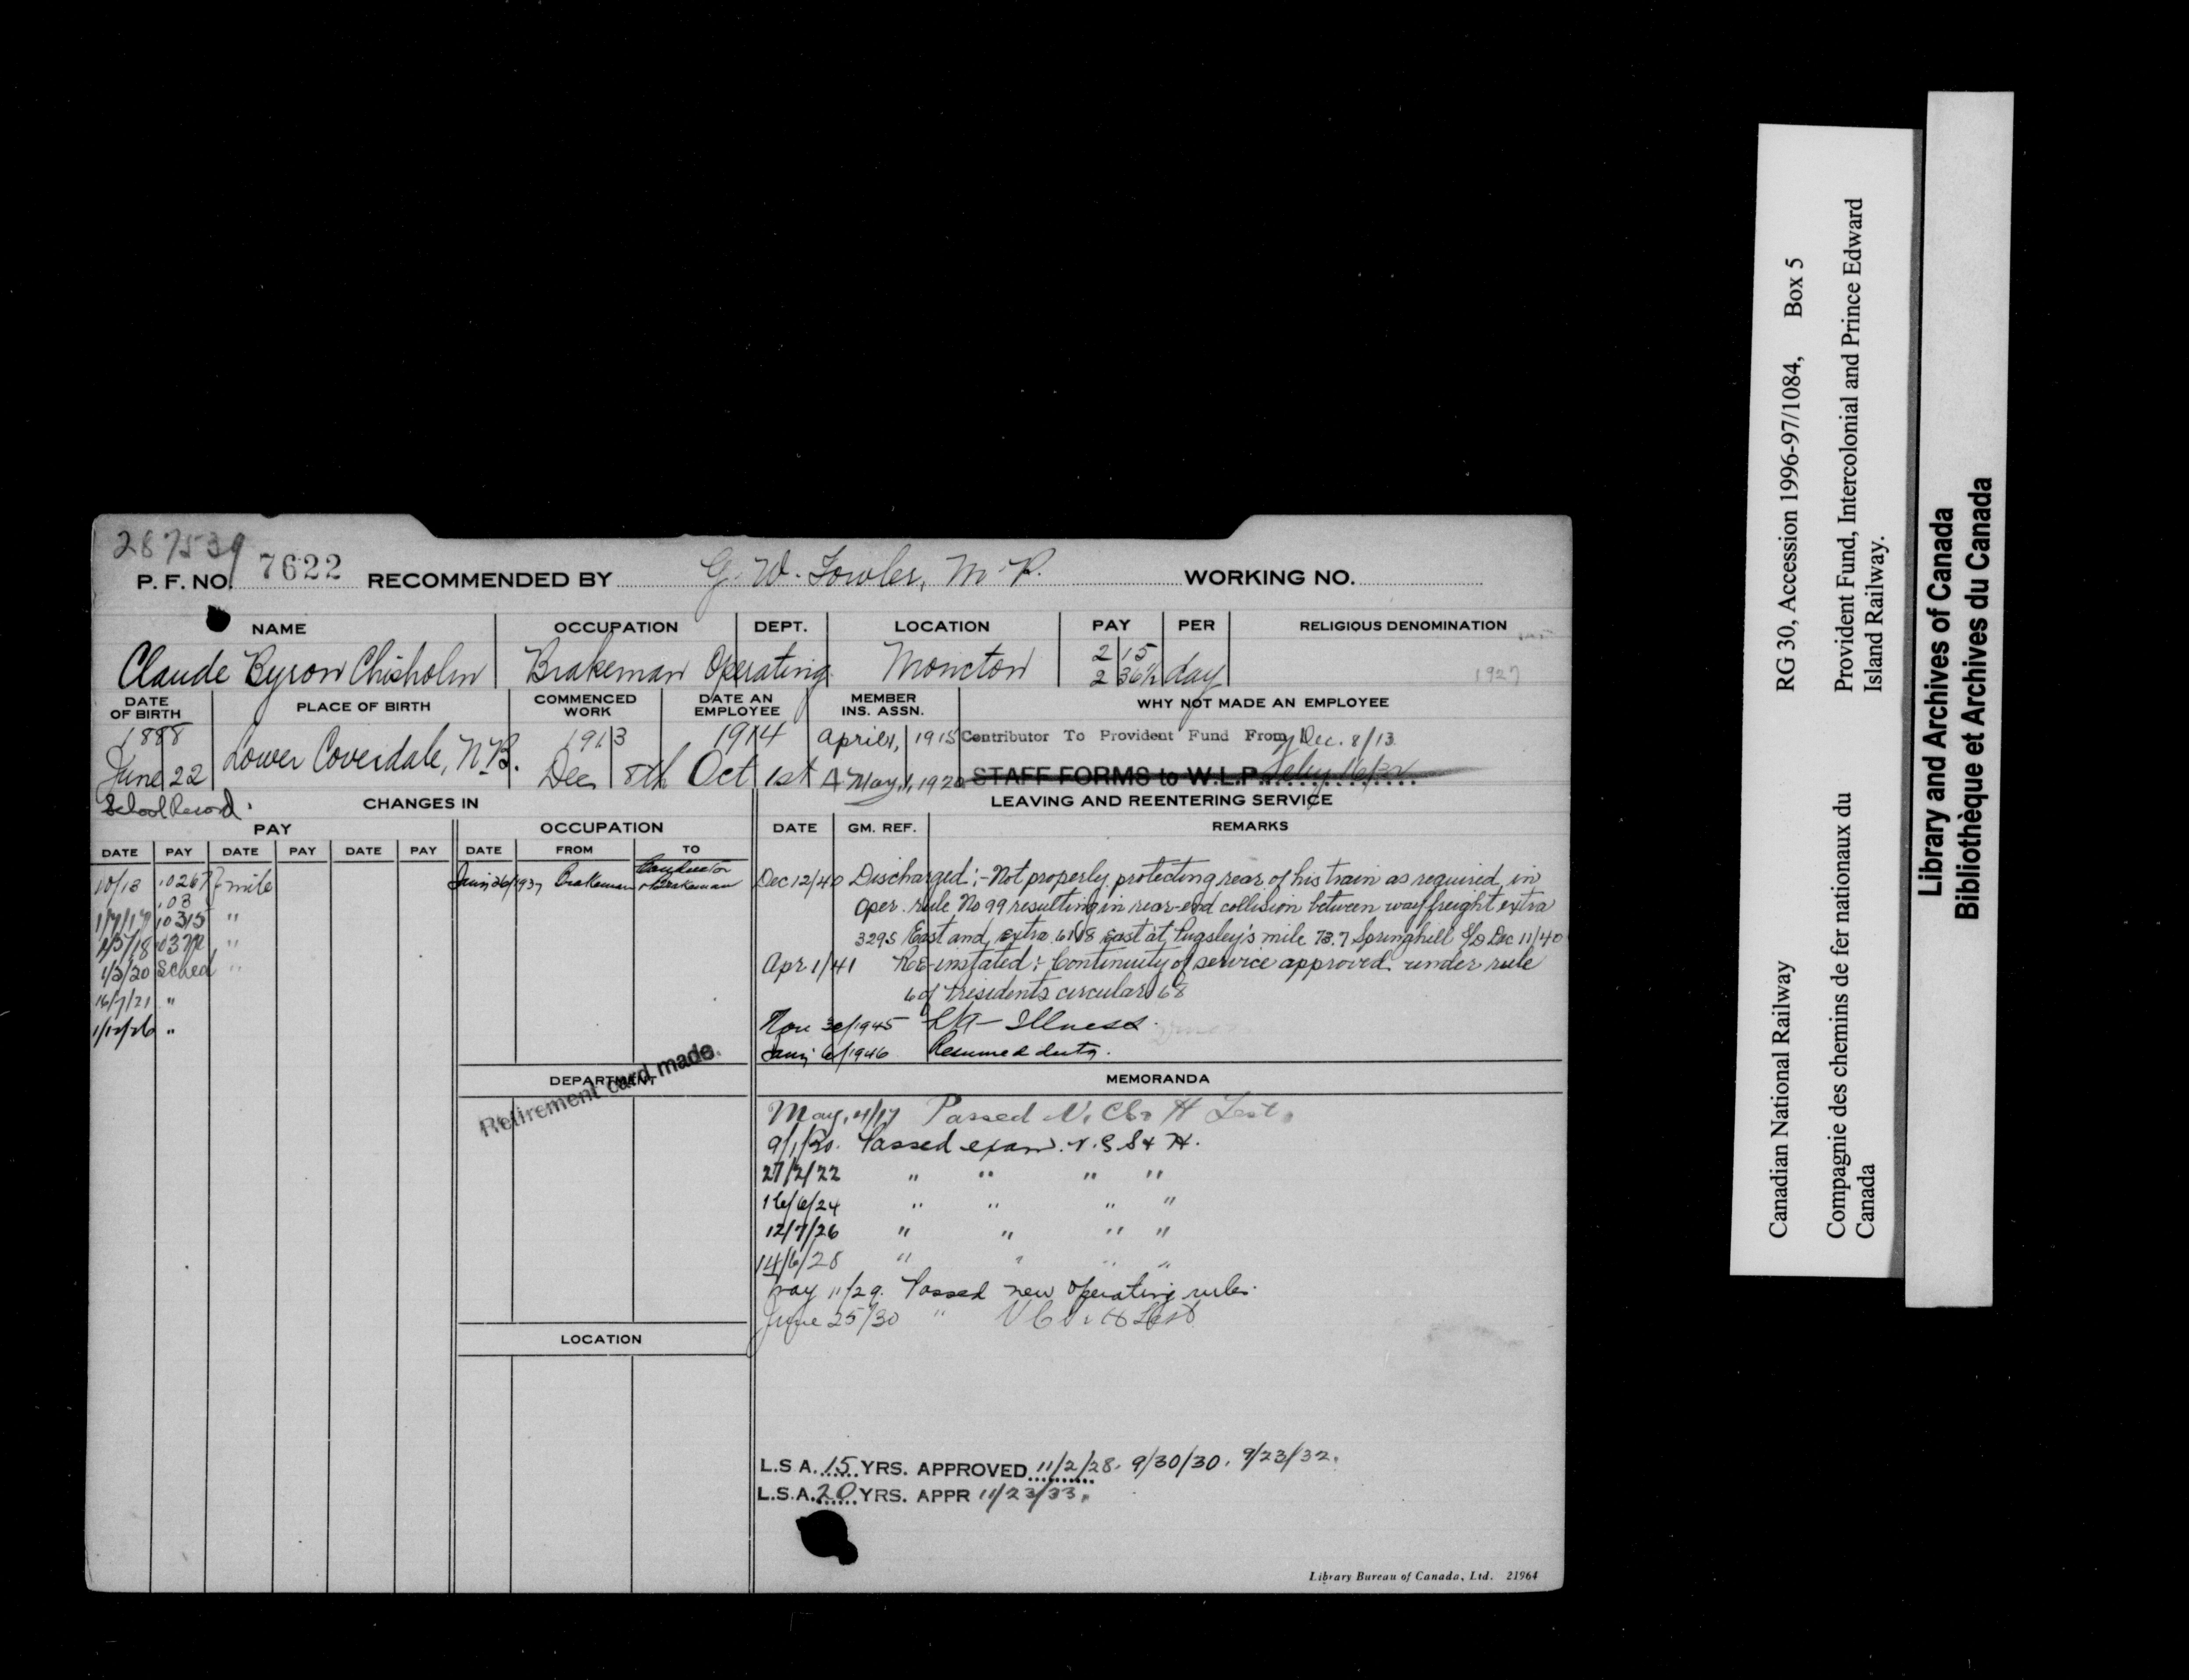 287539
P. F. NO. 7622 RECOMMENDED BY G. W. Fowler, M.P. WORKING NO.
NAME OCCUPATION DEPT. LOCATION PAY PER RELIGIOUS DENOMINATION
Claude Byron Chisholm Brakeman Operating Moncton 2 15
2 36½ day 1927
DATE OF BIRTH PLACE OF BIRTH COMMENCED WORK DATE AN EMPLOYEE MEMBER INS. ASSN. WHY NOT MADE AN EMPLOYEE
1888 Lower Coverdale, N.B. 1913 1914 April 1, 1915 Contributor To Provident Fund From Dec. 8/13
June 22 Dec 8th Oct 1st A May 1, 1920 STAFF FORMS to W.L.P.
School Record.
CHANGES IN LEAVING AND REENTERING SERVICE
PAY OCCUPATION DATE GM. REF. REMARKS
DATE PAY DATE PAY DATE PAY DATE FROM TO
10/13 .0267 mile
.03
1/7/17 .0315 "
.0372 "
1/3/20 Sched "
16/7/21 "
1/12/26 "
26/1937 Brakeman Conductor
Brakeman
Dec 12/40 Discharged:- Not properly protecting rear of his train as required in
oper. rule No 99 resulting in rear-end collision between way freight extra
3295 East and extra 6118 East at Pugsley's mile 73.7 Springhill S/D Dec 11/40
Apr 1/41 Re-instated: Continuity of service approved under rule
6 of Presidents circular 68
Nov 30/1945 Illness.
6/1946 Resumed duty.
DEPARTMENT
Retirement card made.
LOCATION
MEMORANDA
May, 4/17 Passed V. Cs. H Test.
9/1/20. Passed exam. V. C S & H.
27/2/22 " " " "
16/6/24 " " " "
12/7/26 " " " "
14/6/28 " " " "
May 11/29. Passed new operating rules.
June 25/30 " V C S & H Test
L.S.A. 15 YRS. APPROVED 11/2/28. 9/30/30. 9/23/32.
L.S.A. 20 YRS. APPR 11/23/33.
Library Bureau of Canada, Ltd. 21964
Canadian National Railway RG 30, Accession 1996-97/1084, Box 5
Compagnie des chemins de fer nationaux du Canada
Provident Fund, Intercolonial and Prince Edward Island Railway.
Library and Archives of Canada
Bibliothèque et Archives du Canada